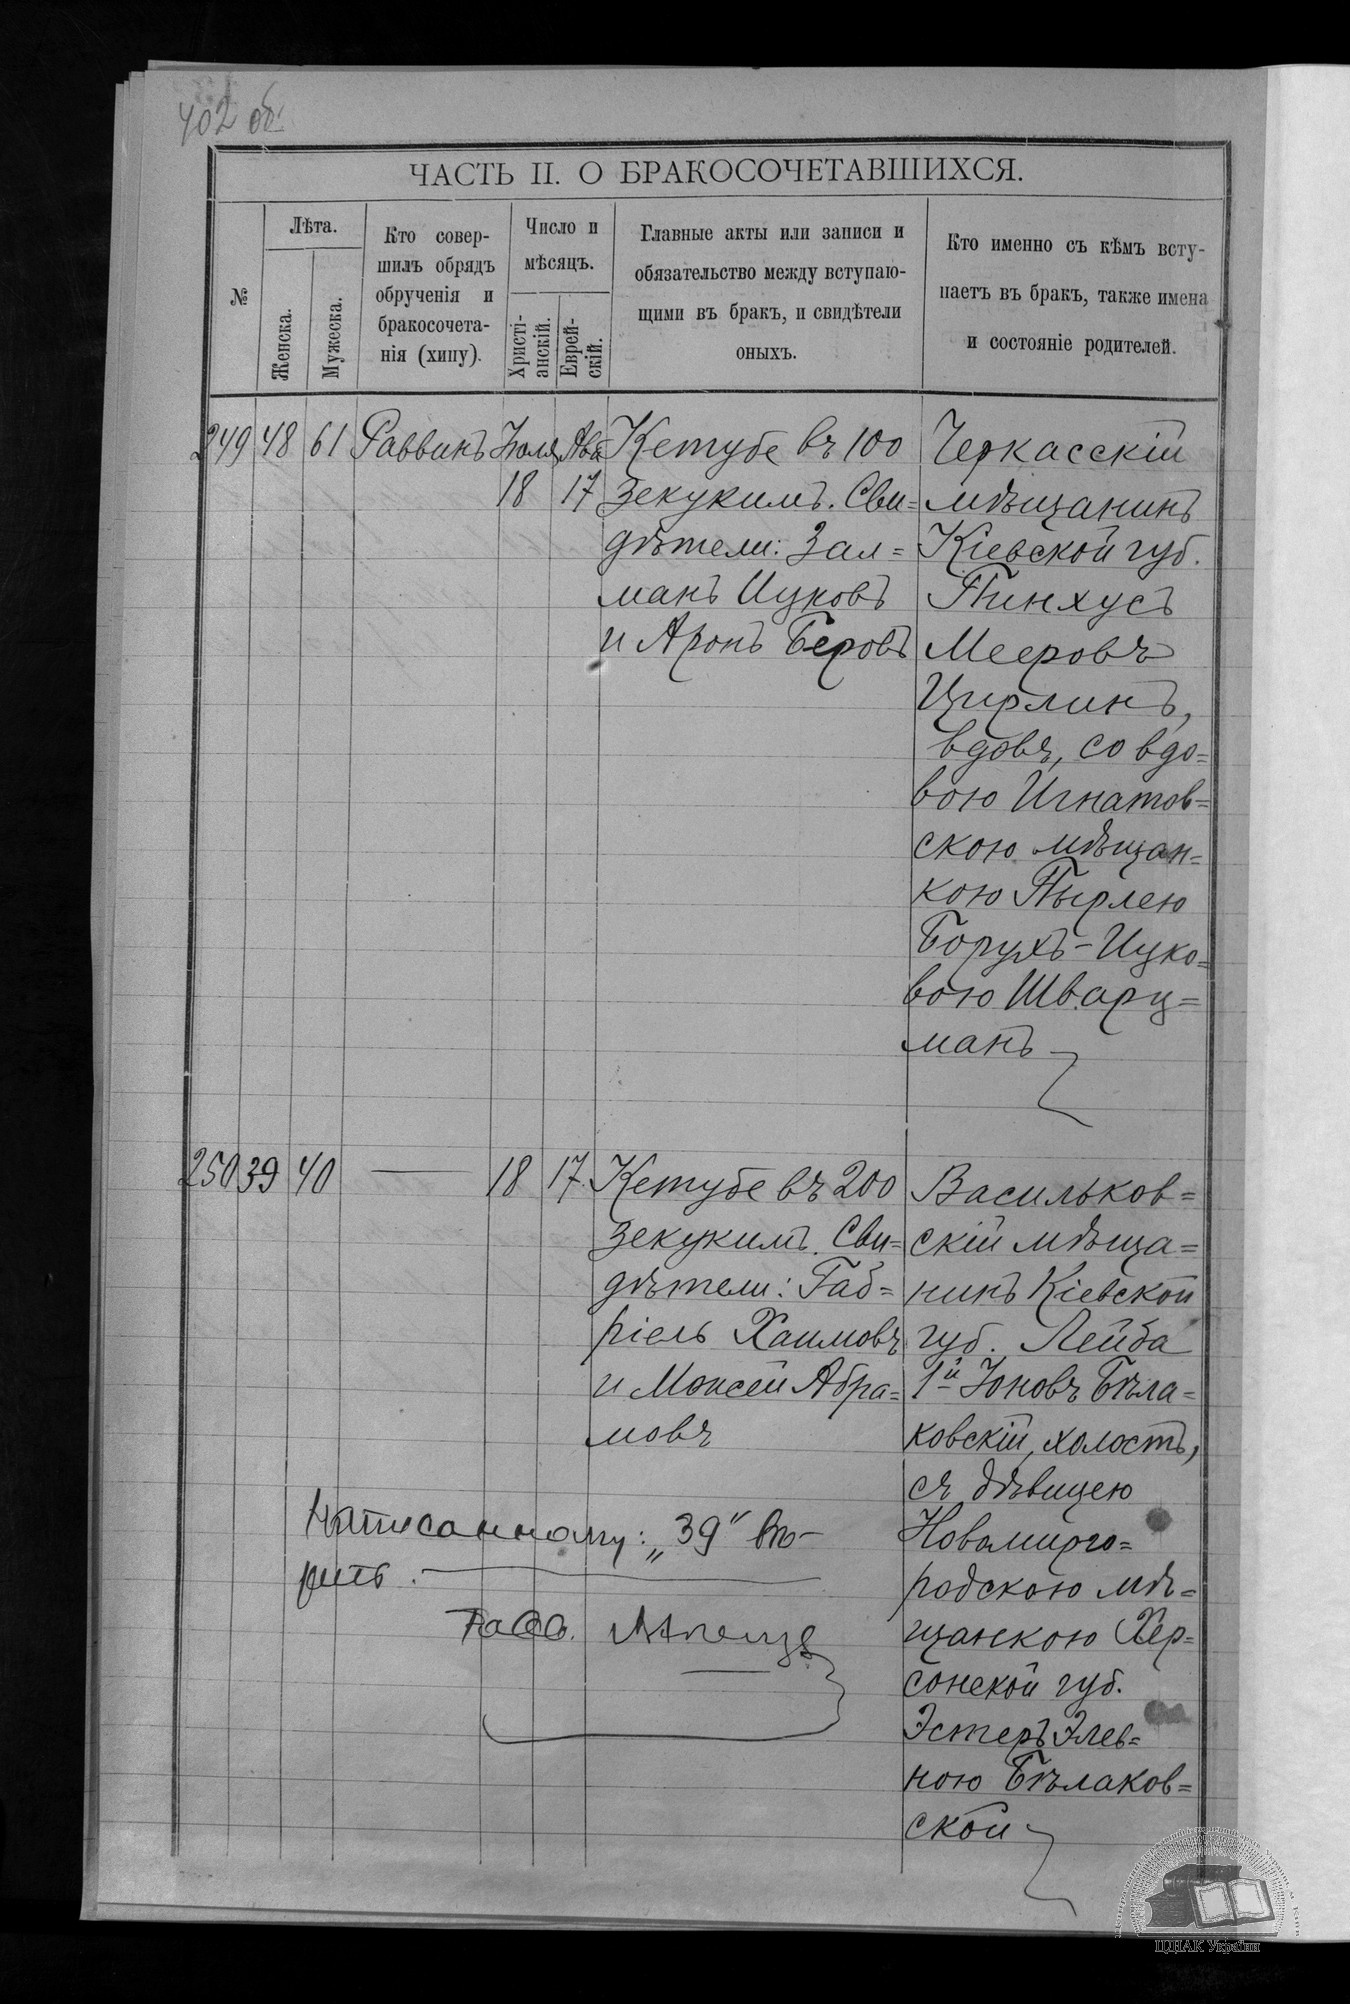 402 об.
ЧАСТЬ II. О БРАКОСОЧЕТАВШИХСЯ.
№
Лѣта.
Женска.
Мужеска.
Кто совер-
шилъ обрядъ
обрученія и
бракосочета-
нія (хипу).
Число и
мѣсяцъ.
Христі-
анскій.
Еврей-
скій.
Главные акты или записи и
обязательство между вступаю-
щими въ бракъ, и свидѣтели
оныхъ.
Кто именно съ кѣмъ всту-
паетъ въ бракъ, также имена
и состояніе родителей.
249 48 61 Раввинъ Іюля Ава
18 17
Кетубе въ 100
Зекукимъ. Сви=
дѣтели: Зал=
манъ Ицковъ
и Аронъ Беровъ
Черкасскій
мѣщанинъ
Кіевской губ.
Пинхусъ
Мееровъ
Цирлинъ,
вдовъ, со вдо=
вою Игнатов=
скою мѣщан=
кою Пырлею
Борухъ-Ицко=
вою Шварц=
манъ
250 39 40 — 18 17.
Кетубе въ 200
Зекукимъ. Сви=
дѣтели: Габ=
ріель Хаимовъ
и Моисей Абра=
мовъ
Васильков=
скій мѣща=
нинъ Кіевской
губ. Лейба
1й Іоновъ Бѣла=
ковскій, холостъ,
съ дѣвицею
Новомирго=
родскою мѣ=
щанкою Хер=
сонской губ.
Эстеръ Элев=
ною Бѣлаков=
ской
Написанному: „39“ вѣ-
рить.
Равв.
ЦДІАК України